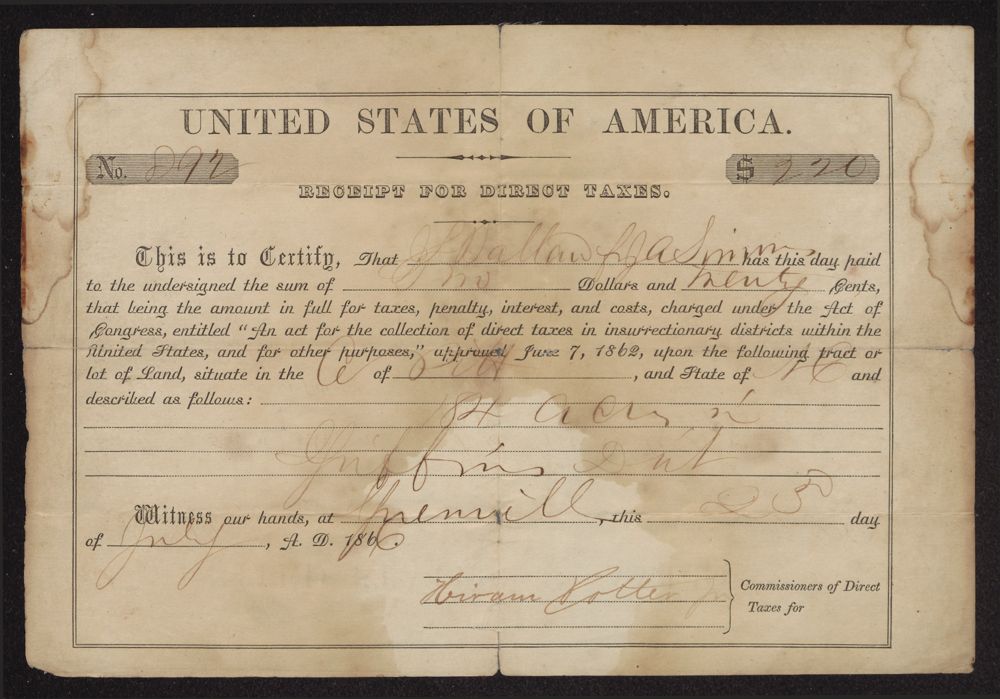 UNITED STATES OF AMERICA.
No. 292 $ 2 20
RECEIPT FOR DIRECT TAXES.
This is to Certify, That has this day paid
to the undersigned the sum of Two Dollars and Twenty Cents,
that being the amount in full for taxes, penalty, interest, and costs, charged under the Act of
Congress, entitled "An act for the collection of direct taxes in insurrectionary districts within the
United States, and for other purposes," approved June 7, 1862, upon the following tract or
lot of Land, situate in the Co of Pitt, and State of N C and
described as follows:
84 acres in
Griffins Dist
Witness our hands, at Greenvill, this 25 day
of July, A. D. 1866.
Hiram Potter Jr
Commissioners of Direct
Taxes for